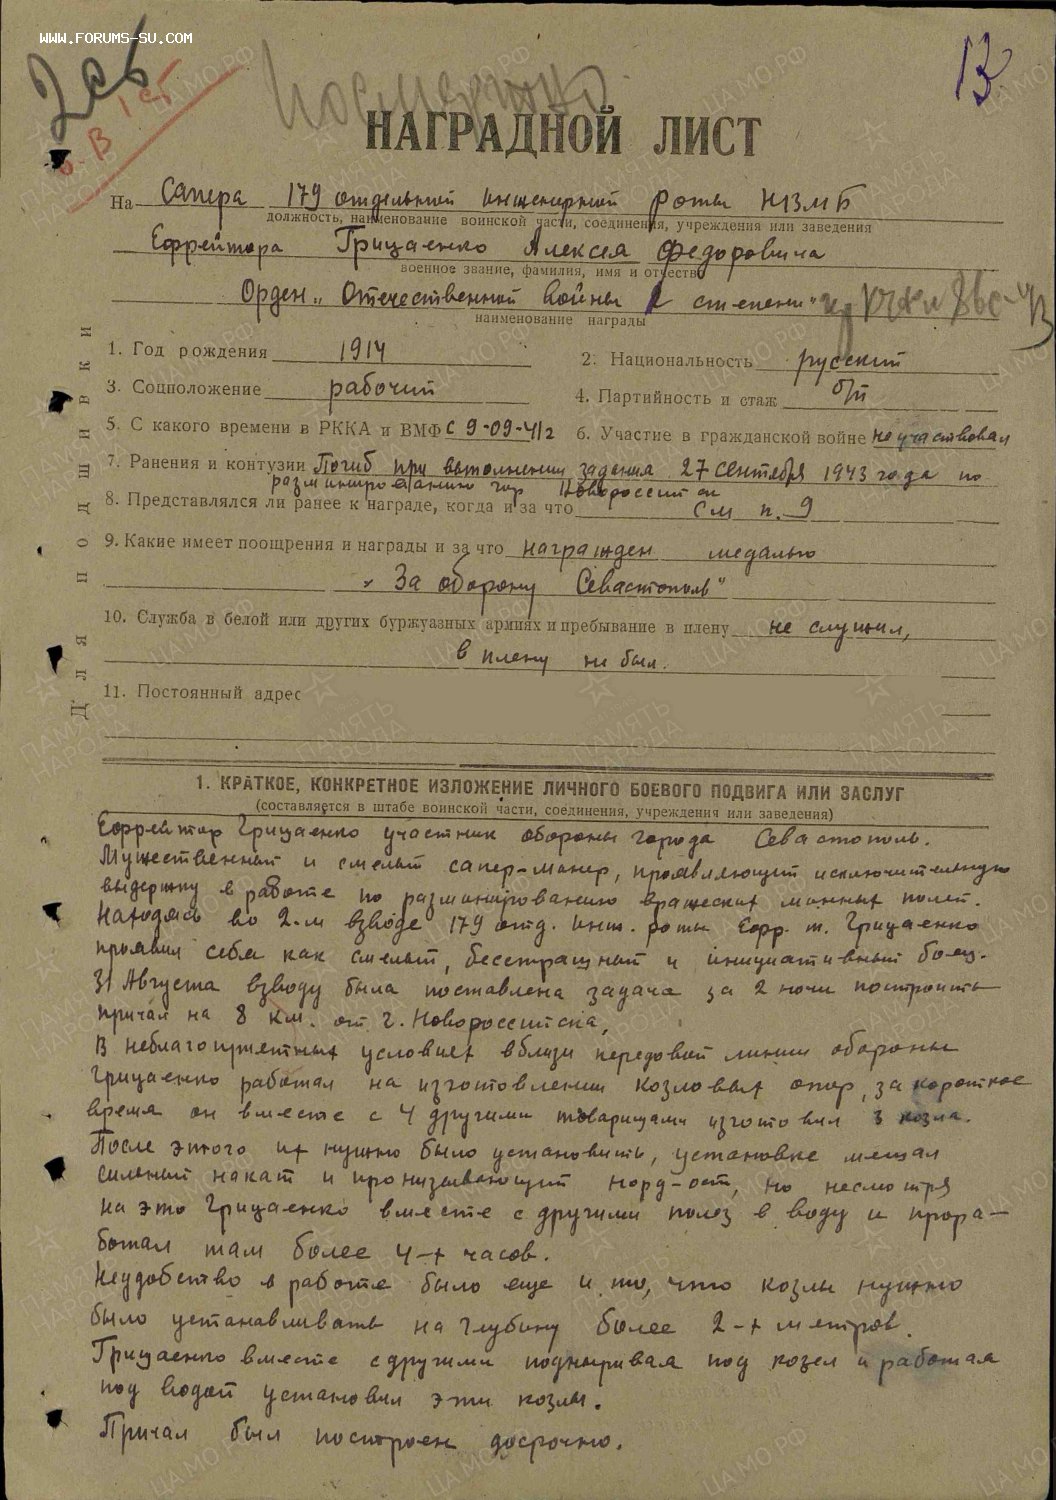 WWW.FORUMS-SU.COM
Посмертно
13
НАГРАДНОЙ ЛИСТ
На Сапера 179 отдельной инженерной роты НВМБ
должность, наименование воинской части, соединения, учреждения или заведения
Ефрейтора Грицаенко Алексея Федоровича
военное звание, фамилия, имя и отчество
Орден „Отечественной войны 2 степени"
наименование награды
1. Год рождения 1914
2. Национальность русский
3. Соцположение рабочий
4. Партийность и стаж б/п
5. С какого времени в РККА и ВМФ с 9-09-41г
6. Участие в гражданской войне не участвовал
7. Ранения и контузии Погиб при выполнении задания 27 сентября 1943 года по
разминированию гор Новороссийск
8. Представлялся ли ранее к награде, когда и за что см п. 9
9. Какие имеет поощрения и награды и за что награжден медалью
„За оборону Севастополь"
10. Служба в белой или других буржуазных армиях и пребывание в плену не служил,
в плену не был.
11. Постоянный адрес
Для подшивки
1. КРАТКОЕ, КОНКРЕТНОЕ ИЗЛОЖЕНИЕ ЛИЧНОГО БОЕВОГО ПОДВИГА ИЛИ ЗАСЛУГ
(составляется в штабе воинской части, соединения, учреждения или заведения)
Ефрейтор Грицаенко участник обороны города Севастополь.
Мужественный и смелый сапер-минер, проявляющий исключительную
выдержку в работе по разминированию вражеских минных полей.
Находясь во 2-м взводе 179 отд. инж. роты Ефр. т. Грицаенко
проявил себя как смелый, бесстрашный и инициативный боец.
31 Августа взводу была поставлена задача за 2 ночи построить
причал на 8 км. от г. Новороссийска,
В неблагоприятных условиях вблизи передовой линии обороны
Грицаенко работал на изготовлении козловых опор, за короткое
время он вместе с 4 другими товарищами изготовил 3 козла.
После этого их нужно было установить, установке мешал
сильный накат и пронизывающий норд-ост, но несмотря
на это Грицаенко вместе с другими полез в воду и прора-
ботал там более 4-х часов.
Неудобство в работе было еще и то, что козлы нужно
было устанавливать на глубину более 2-х метров.
Грицаенко вместе с другими подныривая под козел и работая
под водой установил эти козлы.
Причал был построен досрочно.